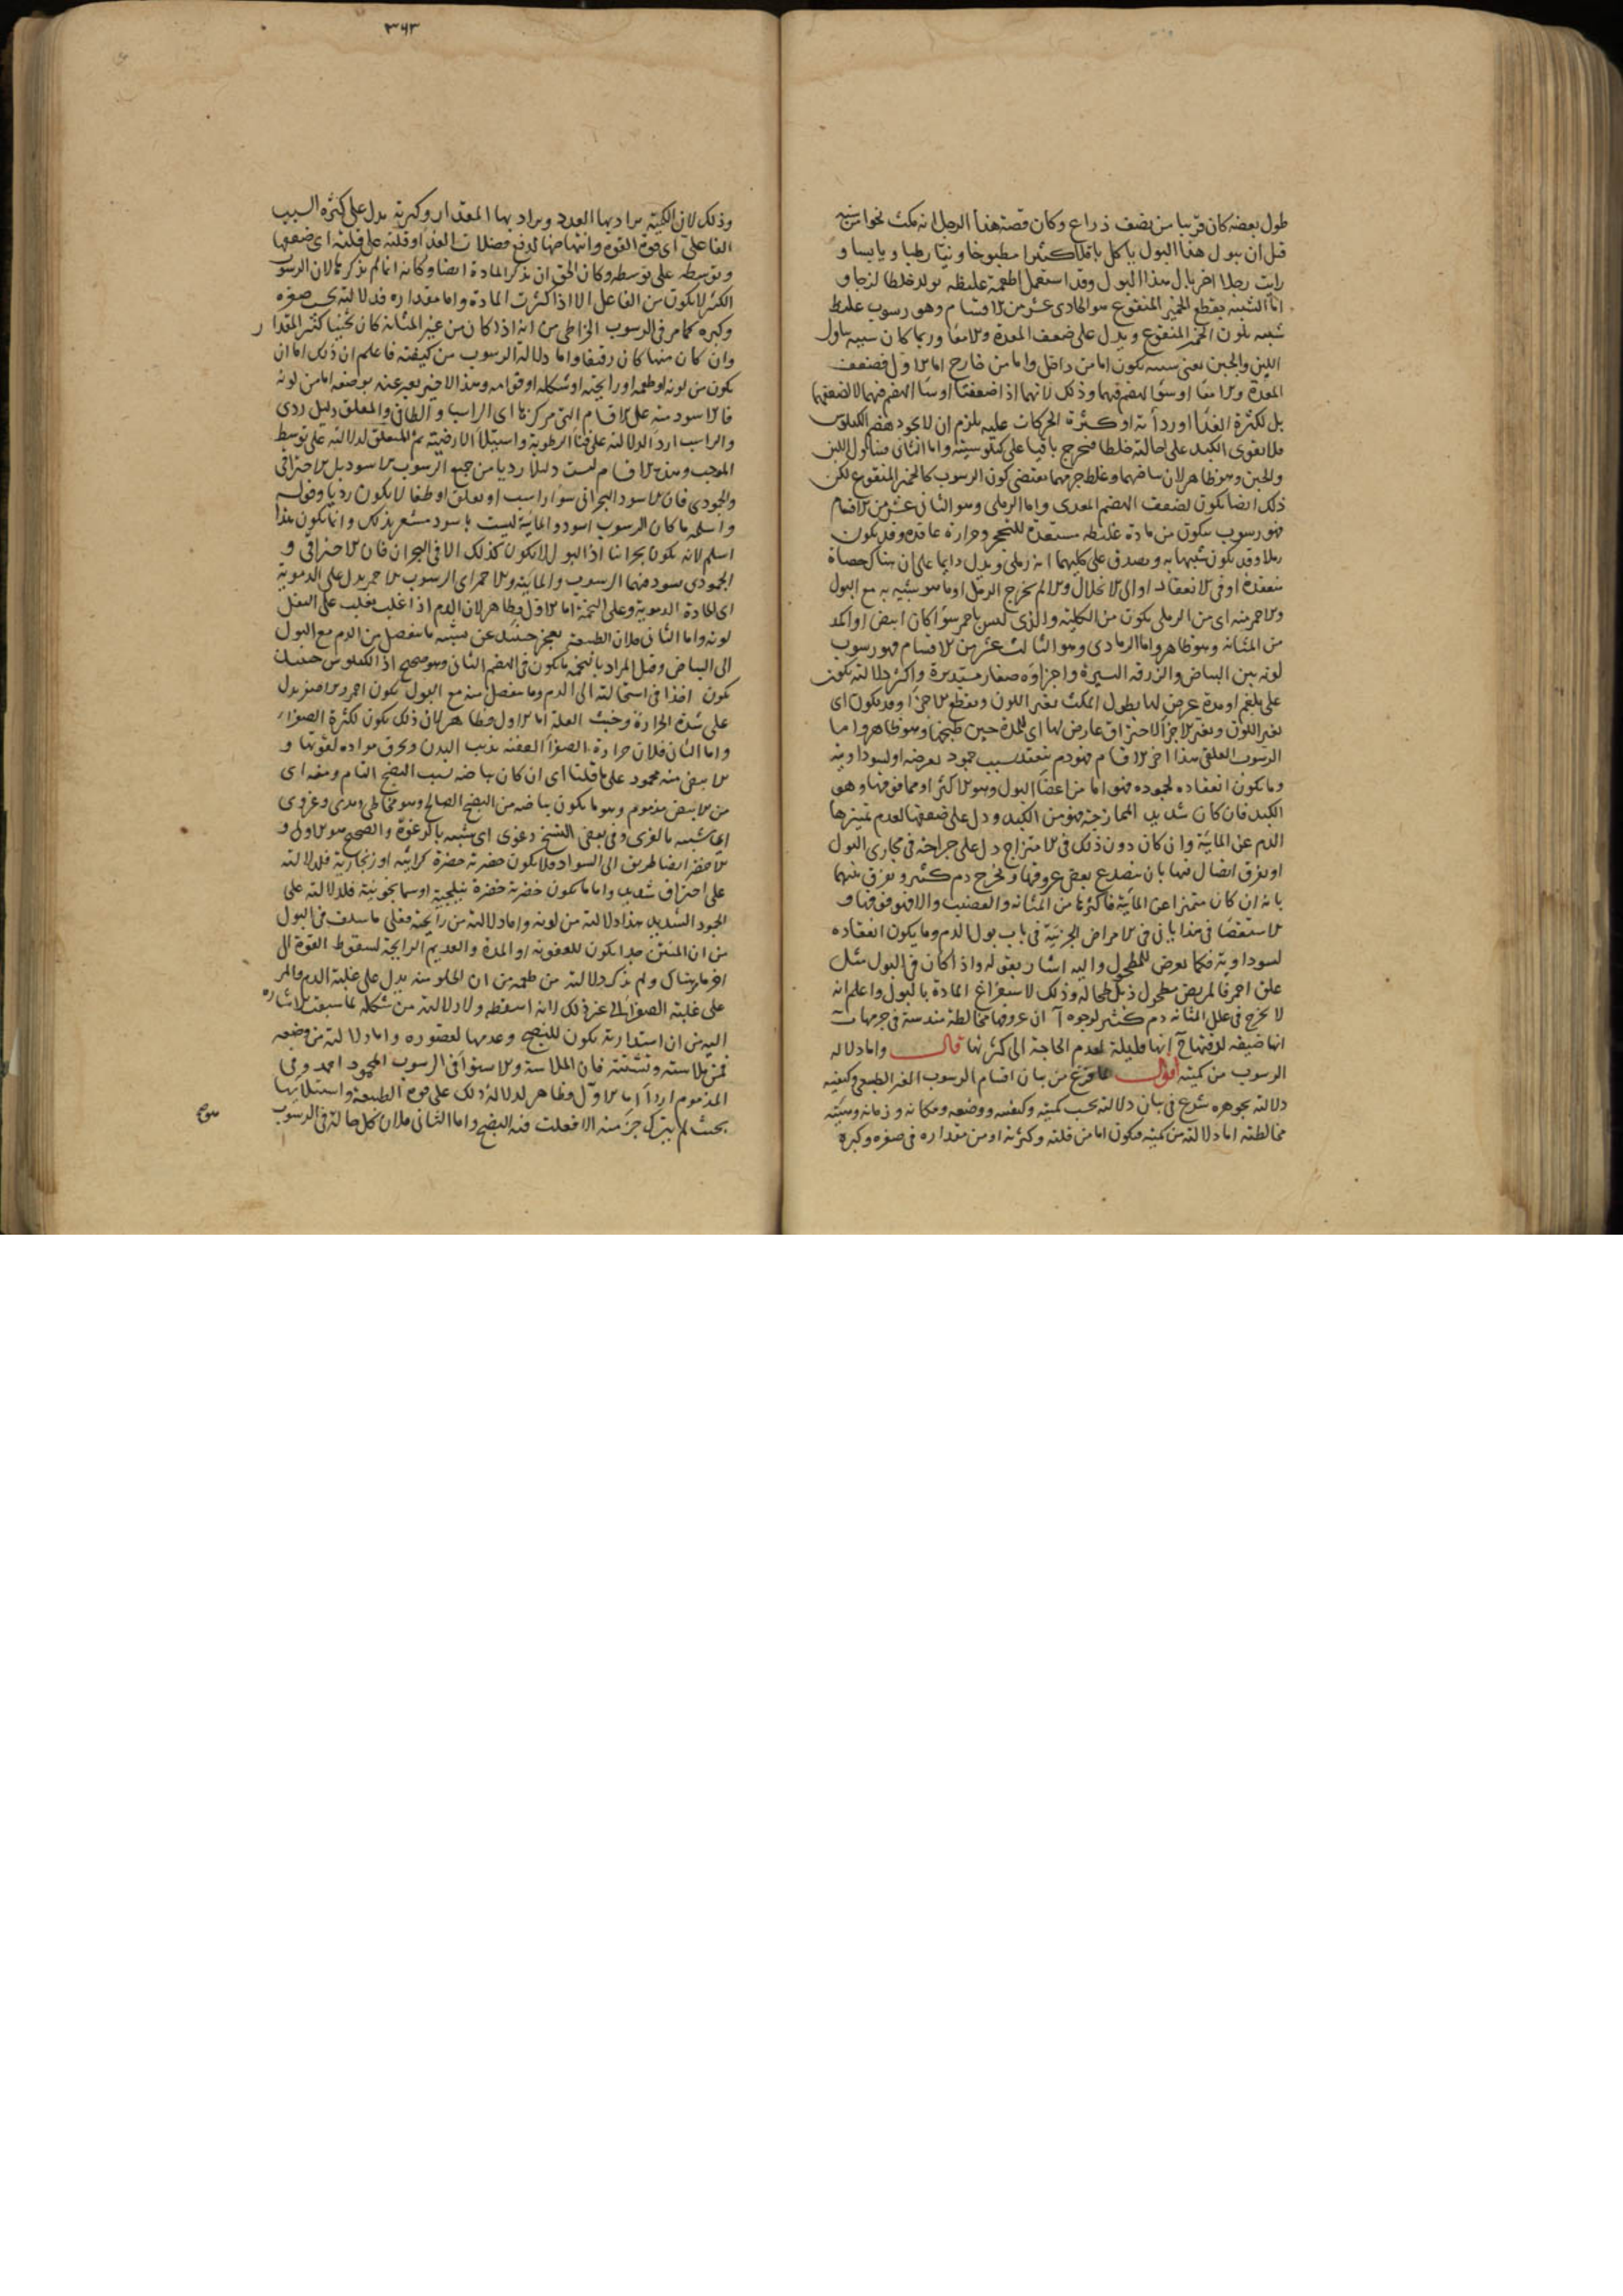 طول بعضه كان قريبا من نصف ذراع وكان قصة هذا الرجل انه مكث نحوا من سنة
قبل ان يبول هذا البول ياكل باقلا كثيرا مطبوخا ونيّا رطبا ويابسا و
رايت رجلا اخر بال هذا البول وقد استعمل اطعمة غليظه تولد خلطا لزجا و
اما الشبيه بقطع الخمير المنقوع هو الحادى عشر من الاقسام وهو رسوب غليظ
شبيه بلون الخمير المنقوع ويدل على ضعف المعدة والامعا وربما كان سببه تناول
اللبن والجبن يعنى سببه يكون اما من داخل واما من خارج اما الاول فضعف
المعدة والامعا او سوء الهضم فيهما وذلك لانهما اذا ضعفتا او ساء الهضم فيهما لا لضعفهما
بل لكثرة الغذا او رداءته او كثرة الحركات عليه يلزم ان لا يجود هضم الكيلوس
فلا تقوى الكبد على احالته خلطا فيخرج باقيا على كيلوسيته واما الثانى فتناول اللبن
والجبن وهو ظاهر لان بياضهما وغلظ جرمهما يقتضى كون الرسوب كالخمير المنقوع لكن
ذلك ايضا يكون لضعف الهضم المعدى واما الرملى وهو الثانى عشر من الاقسام
فهو رسوب يتكون من مادة غليظه مستعدة للتحجر وحرارة عاقدة وقد يكون
رملا وقد يكون شبيها به ويصدق على كليهما انه رملى ويدل دايما على ان هناك حصاة
منعقدة او فى الانعقاد او الى الانحلال والا لم يخرج الرمل او ما هو شبيه به مع البول
والاحمر منه اى من الرملى يكون من الكلية والذى ليس باحمر سواء كان ابيض او اكمد
من المثانة وهو ظاهر واما الرمادى وهو الثالث عشر من الاقسام فهو رسوب
لونه بين البياض والزرقه اليسيرة واجزاؤه صغار مستديرة واكثر دلالته يكون
على بلغم او مدة عرض لها بطول المكث تغير اللون وتقطع الاجزا وقد يكون اى
تغير اللون وتغير الاجزا لاحتراق عارض لها اى للمدة حين طبخها وهو ظاهر واما
الرسوب العلقى هذا اخر الاقسام فهو دم منعقد بسبب جمود يعرضه او لسوداويته
وما يكون انعقاده لجموده فهو اما من اعضا البول وهو الاكثر او مما فوقها وهو
الكبد فان كان شديد الممازجة فهو من الكبد ودل على ضعفها لعدم تميزها
الدم عن المائية وان كان دون ذلك فى الامتزاج دل على جراحة فى مجارى البول
او تفرق اتصال فيها بان ينصدع بعض عروقها ويخرج دم كثير ويفرق بينهما
بانه ان كان متميزا عن المائية فاكثرها من المثانه والقضيب والا فهو فوقها و
الاستقصا فى هذا ياتى فى الامراض الجزئية فى باب بول الدم وما يكون انعقاده
لسوداويته فكما يعرض للمطحول واليه اشار بقوله واذا كان فى البول مثل
علق احمر فالمريض مطحول ذبل طحاله وذلك لاستفراغ المادة بالبول واعلم انه
لا يخرج فى علل المثانه دم كثير لوجوه آ ان عروقها مخالطة مندسة فى جرمها ب
انها ضيقه لدقتها ج انها قليلة لعدم الحاجة الى كثرتها قال واما دلالة
الرسوب من كميته اقول لما فرغ من بيان اقسام الرسوب الغير الطبيعى وكيفيه
دلالته بجوهره شرع فى بيان دلالته بحسب كميته وكيفيته ووضعه ومكانه وزمانه وهيئته
مخالطته اما دلالته من كميته فيكون اما من قلته وكثرته او من مقداره فى صغره وكبره
٣٦٣
وذلك لان الكمية يراد بها العدد ويراد بها المقدار وكثرته يدل على كثرة السبب
الفاعل اى قوة القوة وانتهاضها لدفع فضلات الغذا وقلته على قلته اى ضعفها
وتوسطه على توسطه وكان الحق ان يذكر المادة ايضا وكانه انما لم يذكرها لان الرسوب
الكثير لا يكون من الفاعل الا اذا كثرت المادة واما مقداره فدلالته بحسب صغره
وكبره كما مر فى الرسوب الخراطى من انه اذا كان من غير المثانة كان ثخينا كثير المقدار
وان كان منها كان رقيقا واما دلالة الرسوب من كيفيته فاعلم ان ذلك اما ان
يكون من لونه او طعمه او رايحته او شكله او قوامه وهذا الاخير يعبر عنه بوضعه اما من لونه
فالاسود منه على الاقسام التى مر ذكرها اى الراسب والطافى والمعلق دليل ردى
والراسب اردا لدلالته على فنا الرطوبة واستيلا الارضية ثم المتعلق لدلالته على توسط
الموجب وهذه الاقسام ليست دليلا رديا من جميع الرسوب الاسود بل الاحتراقى
والجمودى فان الاسود البحرانى سواء راسب او تعلق او طفا لا يكون رديا وقوله
واسلمه ما كان الرسوب اسود والمائية ليست باسود مشعر بذلك وانما يكون هذا
اسلم لانه يكون بحرانيا اذ البول لا يكون كذلك الا فى البحران فان الاحتراقى و
الجمودى يسود فيهما الرسوب والمائية والاحمر اى الرسوب الاحمر يدل على الدموية
اى المادة الدموية وعلى التخمة اما الاول فظاهر لان الدم اذا غلب يغلب على الثفل
لونه واما الثانى فلان الطبيعه تعجز حينئذ عن تشبيه ما ينفصل من الدم مع البول
الى البياض وقيل المراد بالتخمة ما يكون فى الهضم الثانى وهو صحيح اذ الكيلوس حينئذ
يكون اخذا فى استحالته الى الدم وما ينفصل منه مع البول يكون احمر والاصفر يدل
على شدة الحرارة وخبث العلة اما الاول فظاهر لان ذلك يكون لكثرة الصفرا
واما الثانى فلان حرارة الصفرا العفنة يذيب البدن ويحرق مواده لقوتها و
الابيض منه محمود على ما قلنا اى ان كان بياضه لسبب النضج التام ومنه اى
من الابيض مذموم وهو ما يكون بياضه من النضج الصالح وهو مخاطى ومدى وغروى
اى شبيه بالغرى وفى بعض النسخ رغوى اى شبيه بالرغوة والصحيح هو الاول و
الاخضر ايضا طريق الى السواد فلا يكون خضرته خضرة كراثية او زنجارية فلدلالته
على احتراق شديد واما ما يكون خضرته خضرة نيلجية او اسمانجونية فلدلالته على
الجمود الشديد هذا دلالته من لونه واما دلالته من رايحته فعلى ما سلف فى البول
من ان المنتن جدا يكون للعفونة او المدة والعديم الرايحة لسقوط القوة الى
اخر ما هناك ولم يذكر دلالته من طعمه من ان الحلو منه يدل على غلبة الدم والمر
على غلبة الصفرا الى غير ذلك لانه اسقطه ولا دلالته من شكله لما سبقت الاشارة
اليه من ان استدارته يكون للنضج وعدمها لقصوره واما دلالته من وضعه
فمن ملاسته وتشتته فان الملاسة والاستوا فى الرسوب المحمود احمد وفى
المذموم اردا اما الاول فظاهر لدلالة ذلك على قوة الطبيعة واستيلائها
بحيث لم يترك جزء منه الا فعلت فيه النضج واما الثانى فلان كل حالة فى الرسوب